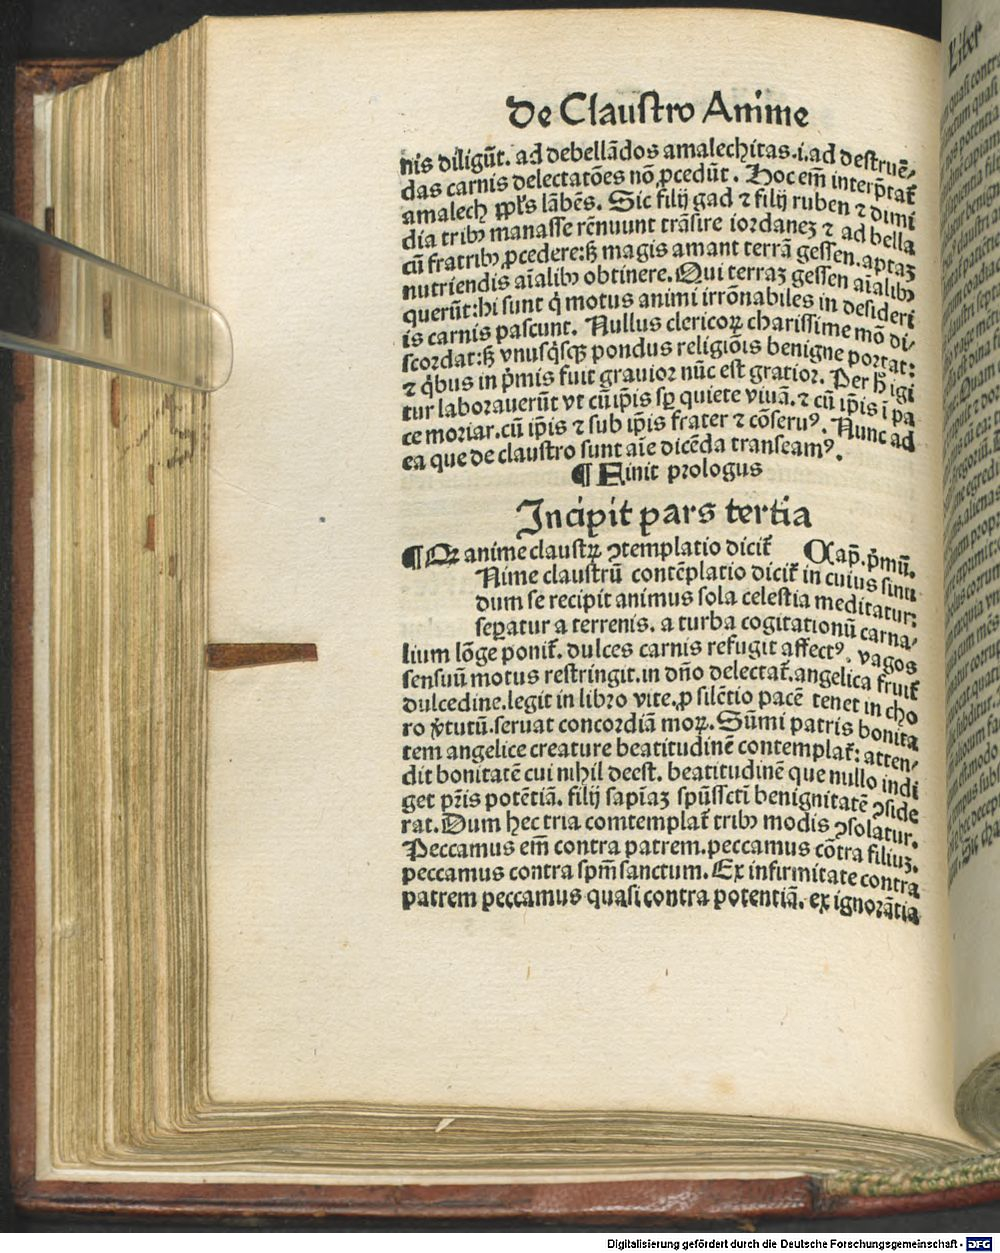 De Claustro Anime
nis diligũt. ad debellãdos amalechitas.i.ad destruẽ⸗
das carnis delectatões nõ ꝓcedũt. Hoc em̃ interp̃tat᷑
amalech ppl's lãbẽs. Sic filij gad ⁊ filij ruben ⁊ dimi
dia tribꝰ manasse rẽnuunt trãsire iordanez ⁊ ad bella
cũ fratribꝰ ꝓcedere:sꝫ magis amant terrã gessen.aptaz
nutriendis aĩalibꝰ obtinere. Qui terraz gessen aĩalibꝰ
querũt:hi sunt q̇ motus animi irrõnabiles in desideri
is carnis pascunt. Nullus clericoꝝ charissime mõ di⸗
scordat:sꝫ vnusq̇sqꝫ pondus religiõis benigne portat:
⁊ q̇bus in p̃mis fuit grauior nũc est gratior. Per h̃ igi
tur laborauerũt vt cũ ip̃is sꝑ quiete viuã.⁊ cũ ip̃is ĩ pa
ce moriar.cũ ip̃is ⁊ sub ip̃is frater ⁊ cõseruꝰ. Nunc ad
ea que de claustro sunt aĩe dicẽda transeamꝰ.
¶ Finit prologus
Incipit pars tertia
¶ Qꝛ anime claustꝝ ꝯtemplatio dicit᷑ Cap̃.p̃mũ.
Nime claustrũ contẽplatio dicit᷑ in cuius sinu
dum se recipit animus sola celestia meditatur:
seꝑatur a terrenis. a turba cogitationũ carna⸗
lium lõge ponit᷑. dulces carnis refugit affectꝰ. vagos
sensuũ motus restringit.in dño delectat᷑.angelica fruit᷑
dulcedine.legit in libro vite.ꝑ silẽtio pacẽ tenet in cho
ro v̓tutũ.seruat concordiã moꝝ. Sũmi patris bonita
tem angelice creature beatitudinẽ contemplat᷑: atten⸗
dit bonitatẽ cui nihil deest. beatitudinẽ que nullo indi
get pr̃is potẽtiã. filij sapĩaz spũssctĩ benignitatẽ ꝯside
rat. Dum hec tria comtemplat᷑ tribꝰ modis ꝯsolatur.
Peccamus em̃ contra patrem.peccamus cõtra filiuz.
peccamus contra spm̃ sanctum. Ex infirmitate contra
patrem peccamus quasi contra potentiã. ex ignorãtia
Liber
Digitalisierung gefördert durch die Deutsche Forschungsgemeinschaft - DFG